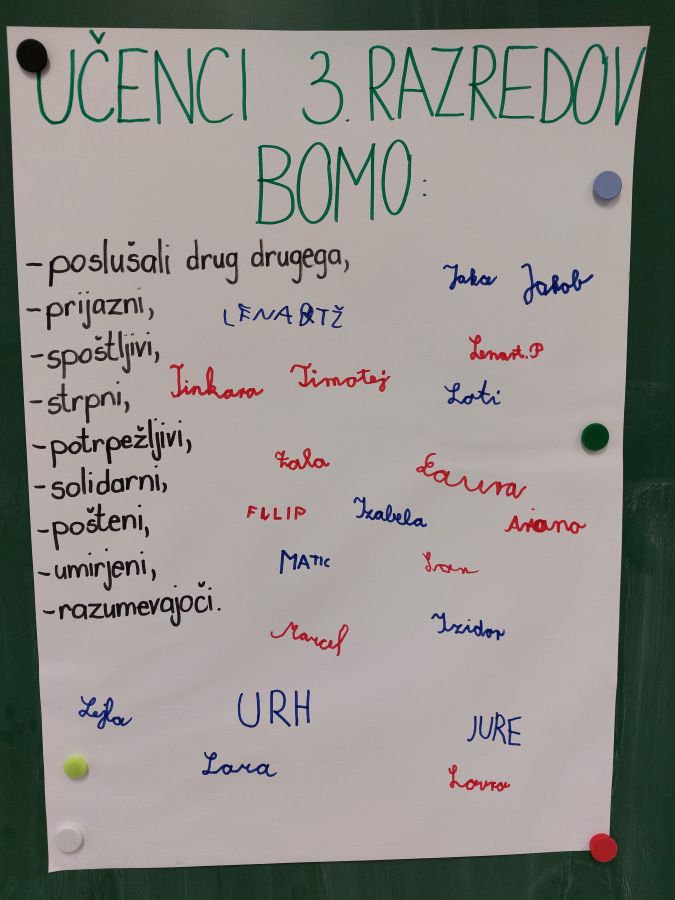 UČENCI 3. RAZREDOV
BOMO:
-poslušali drug drugega,
Jaka Jakob
-prijazni,
LENART Ž
-spoštljivi,
Lenart.P
Tinkara Timotej
-strpni,
Loti
-potrpežljivi,
Zala
Laura
-solidarni,
FILIP Izabela
-pošteni,
MATIC
-umirjeni,
-razumevajoči.
Marcel Izidor
Lejla URH JURE
Lara Lovro